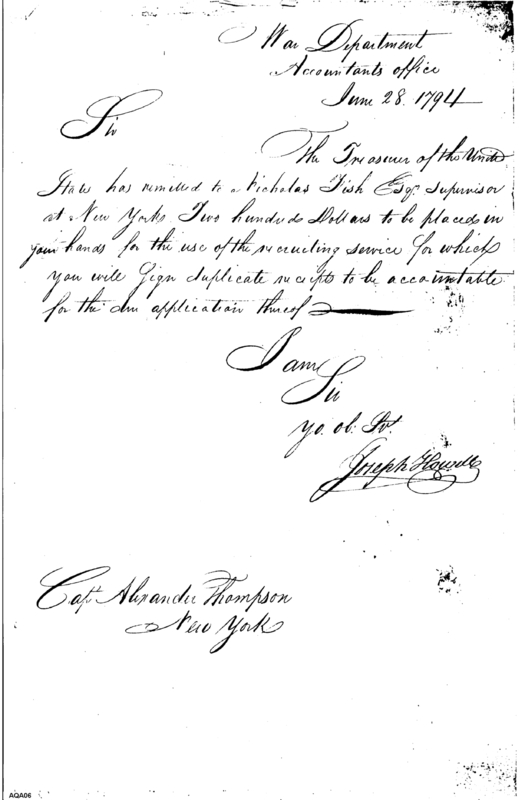 War Department
Accountants office
June 28. 1794
Sir
The Treasurer of the United
States has remitted to Nicholas Fish Esqr. Supervisor
at New York. Two hundred Dollars to be placed in
your hands for the use of the recruiting service for which
you will Sign duplicate receipts to be accountable
for the due application thereof
I am
Sir
yo. ob. Svt.
Joseph Howell
Capt Alexander Thompson
New York
AQA06